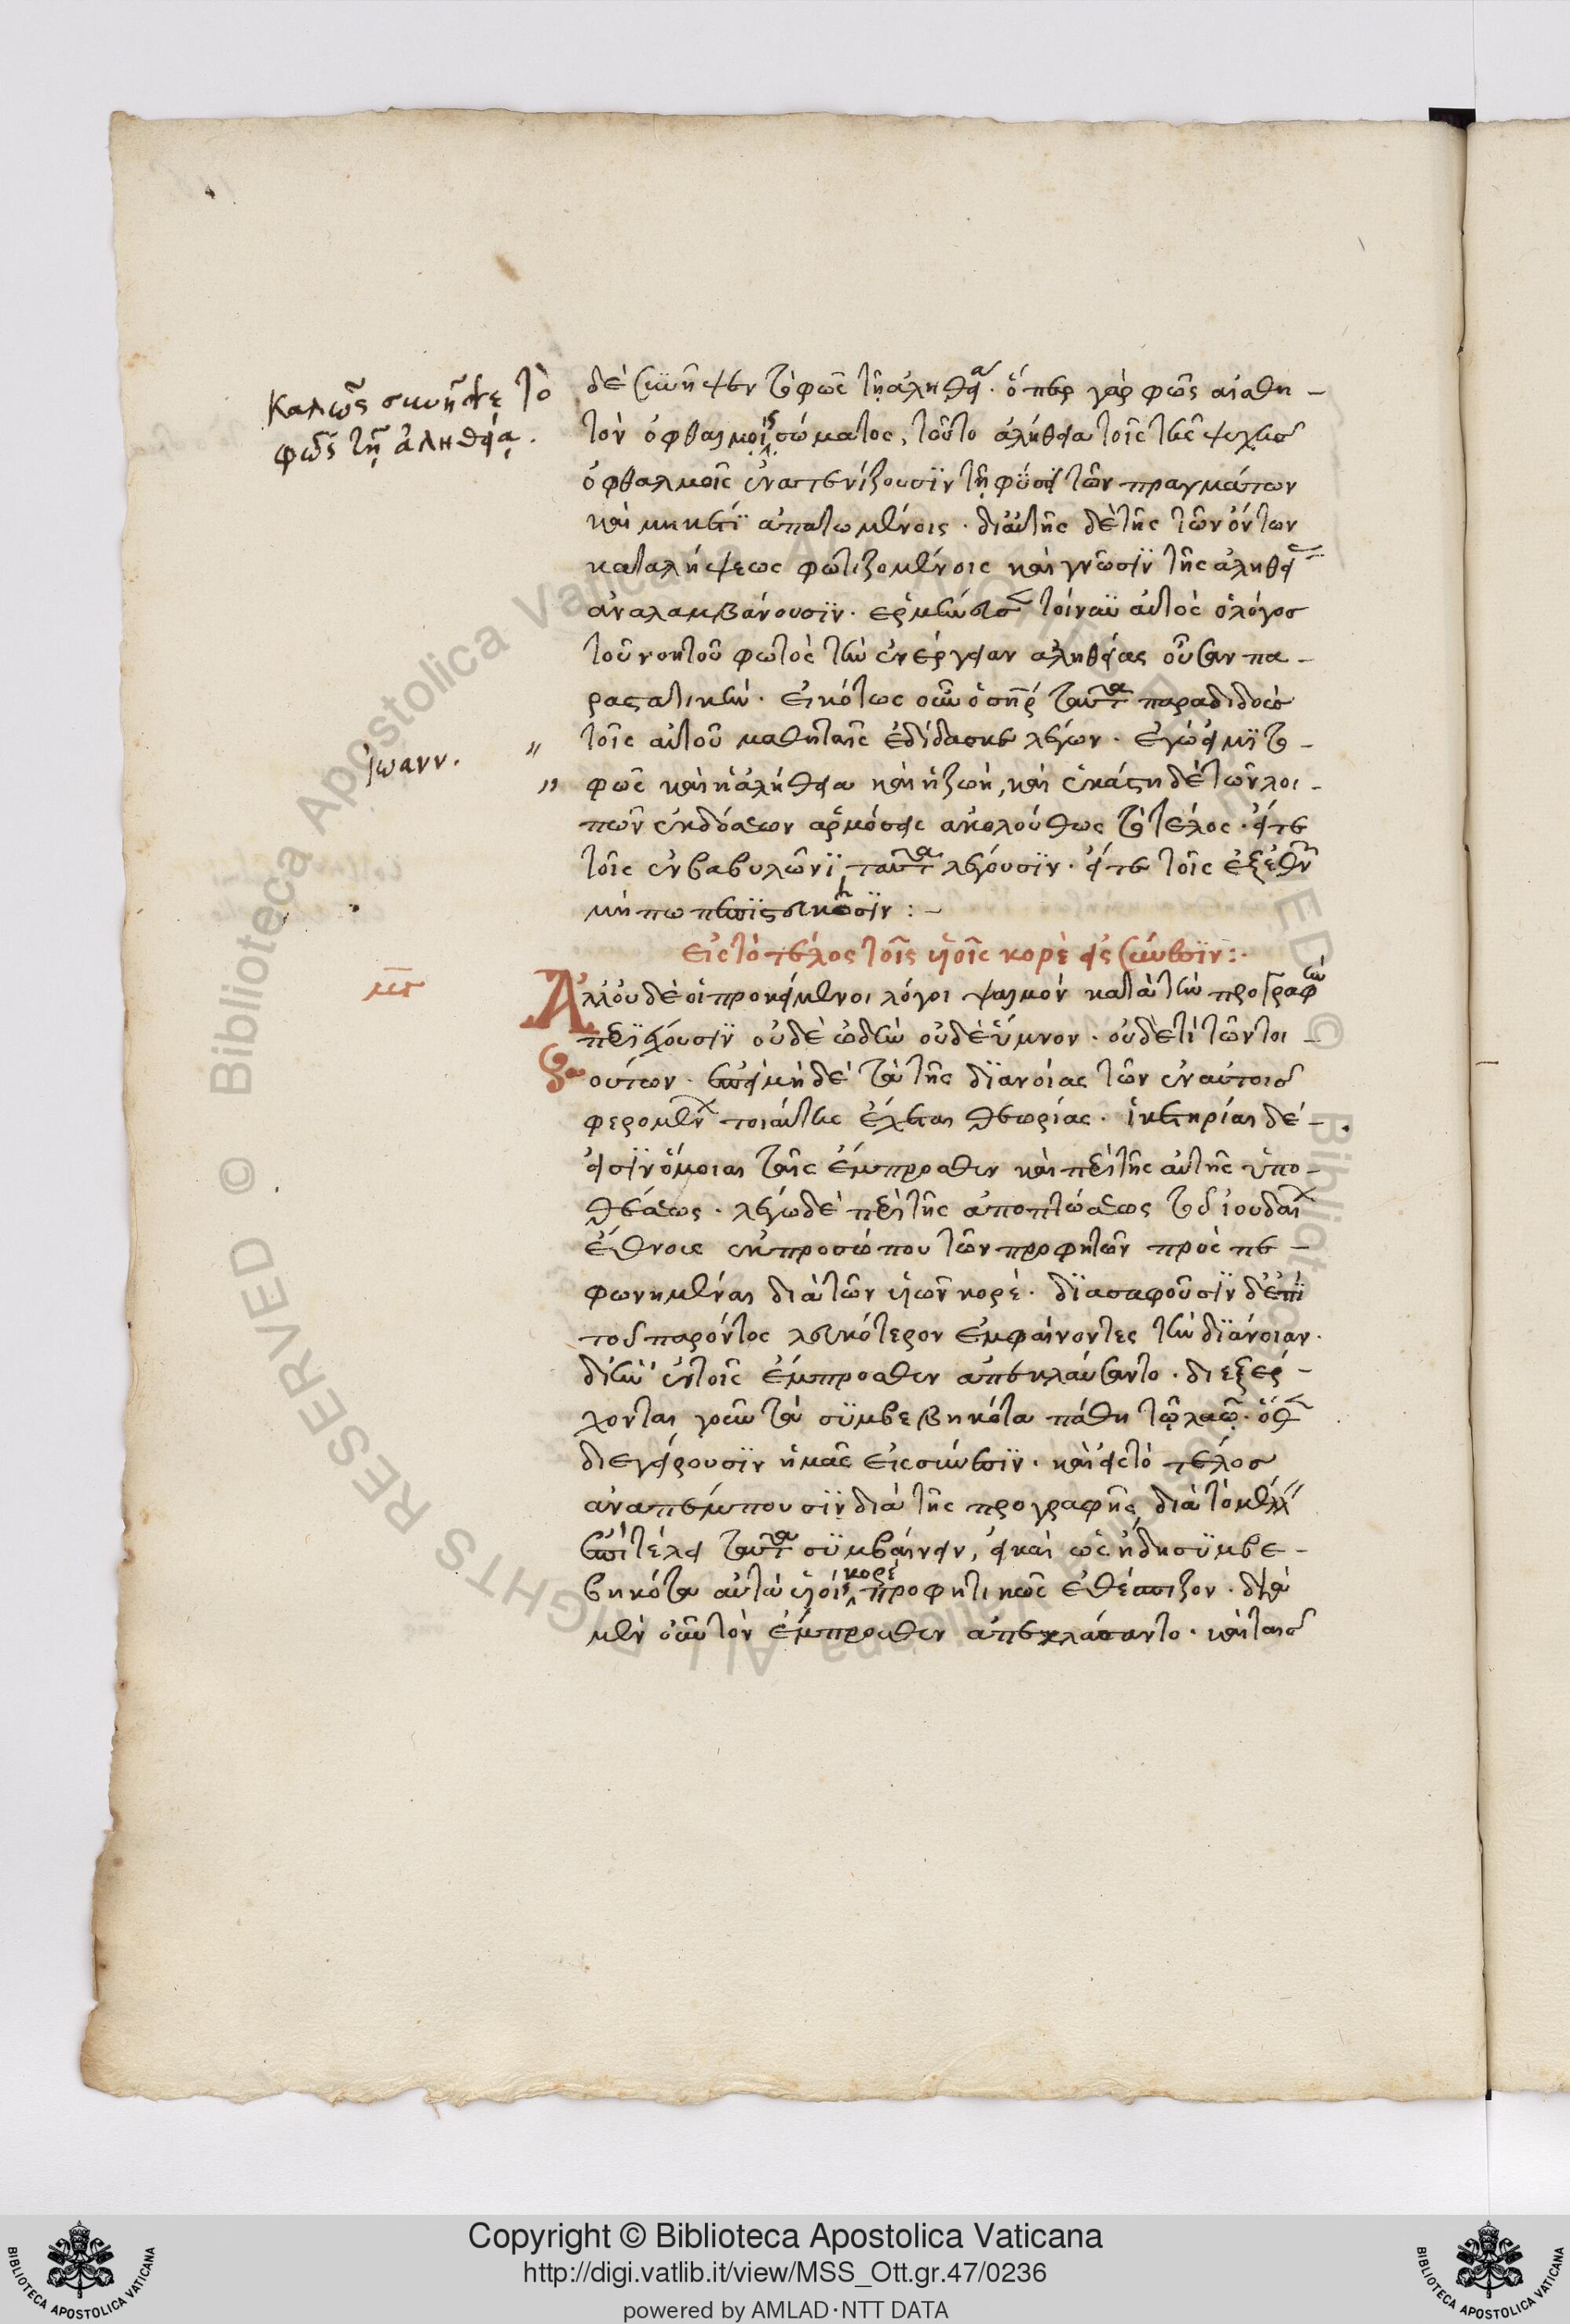 Καλῶς συνῆψε τὸ
φῶς τῇ ἀληθείᾳ.
δὲ συνῆψεν τὸ φῶς τῇ ἀληθείᾳ. ὅπερ γὰρ φῶς αἰσθη-
τὸν ὀφθαλμοῖς σώματος, τοῦτο ἀλήθεια τοῖς τῆς ψυχῆς
ὀφθαλμοῖς ἐνατενίζουσιν τῇ φύσει τῶν πραγμάτων
καὶ μηκέτι ἀπατωμένοις. διὰ τῆς δὲ τῆς τῶν ὄντων
καταλήψεως φωτιζομένοις καὶ γνῶσιν τῆς ἀληθείας
ἀναλαμβάνουσιν. τοίνυν αὐτὸς ὁ λόγος
τοῦ νοητοῦ φωτὸς τὴν ἐνέργειαν ἀληθείας οὖσαν πα-
ραστατικήν. εἰκότως οὖν ὁ σηρ ταῦτα παραδιδοὺς
Ἰωανν.
τοῖς αὐτοῦ μαθηταῖς ἐδίδασκε λέγων. ἐγώ εἰμι τὸ
φῶς καὶ ἡ ἀλήθεια καὶ ἡ ζωή, καὶ ἑκάστη δὲ τῶν λοι-
πῶν ἐκδόσεων ἁρμόσει ἀκολούθως τὸ τέλος. εἴτε
τοῖς ἐν βαβυλῶνι ταῦτα λέγουσιν. εἴτε τοῖς ἐξ ἐθνῶν
μήπω πεπιστευκόσιν :-
εἰς τὸ τέλος τοῖς υἱοῖς κορὲ εἰς σύνεσιν:.
μγ
Ἀλλ' οὐδὲ οἱ προκείμενοι λόγοι ψαλμὸν κατὰ τὴν προγραφὴν
περιέχουσιν οὐδὲ ᾠδὴν οὐδὲ ὕμνον. οὐδέ τι τῶν τοι-
ούτων. ἐπεὶ μὴ δὲ τὰ τῆς διανοίας τῶν ἐν αὐτοῖς
φερομένων τοιαύτης ἔχεται θεωρίας. ἱκετηρίαι δέ
εἰσιν ὅμοιαι ταῖς ἔμπροσθεν καὶ περὶ τῆς αὐτῆς ὑπο-
θέσεως. λέγω δὲ περὶ τῆς ἀποπτώσεως τοῦ ἰουδαίων
ἔθνους ἐκ προσώπου τῶν προφητῶν προσπε-
φωνημέναι διὰ τῶν υἱῶν κορέ. διασαφοῦσιν δὲ ἐπὶ
τοῦ παρόντος λευκότερον ἐμφαίνοντες τὴν διάνοιαν.
δι' ἣν ἐν τοῖς ἔμπροσθεν ἀπεκλαύσαντο. διεξέρ-
χονται γοῦν τὰ συμβεβηκότα πάθη τῷ λαῷ. ὅθεν
διεγείρουσιν ἡμᾶς εἰς σύνεσιν. καὶ εἰς τὸ τέλος
ἀναπέμπουσιν διὰ τῆς προγραφῆς, διὰ τὸ μέλλειν
ἐπὶ τέλει ταῦτα συμβαίνειν, εἰ καὶ ὡς ἤδη συμβε-
βηκότα αὐτὰ υἱοὶ κορὲ προφητικῶς ἐθέσπιζον. διὰ
μὲν οὖν τὸν ἔμπροσθεν ἀπεκλαύσαντο. καὶ ταῖς
Copyright © Biblioteca Apostolica Vaticana
http://digi.vatlib.it/view/MSS_Ott.gr.47/0236
powered by AMLAD·NTT DATA